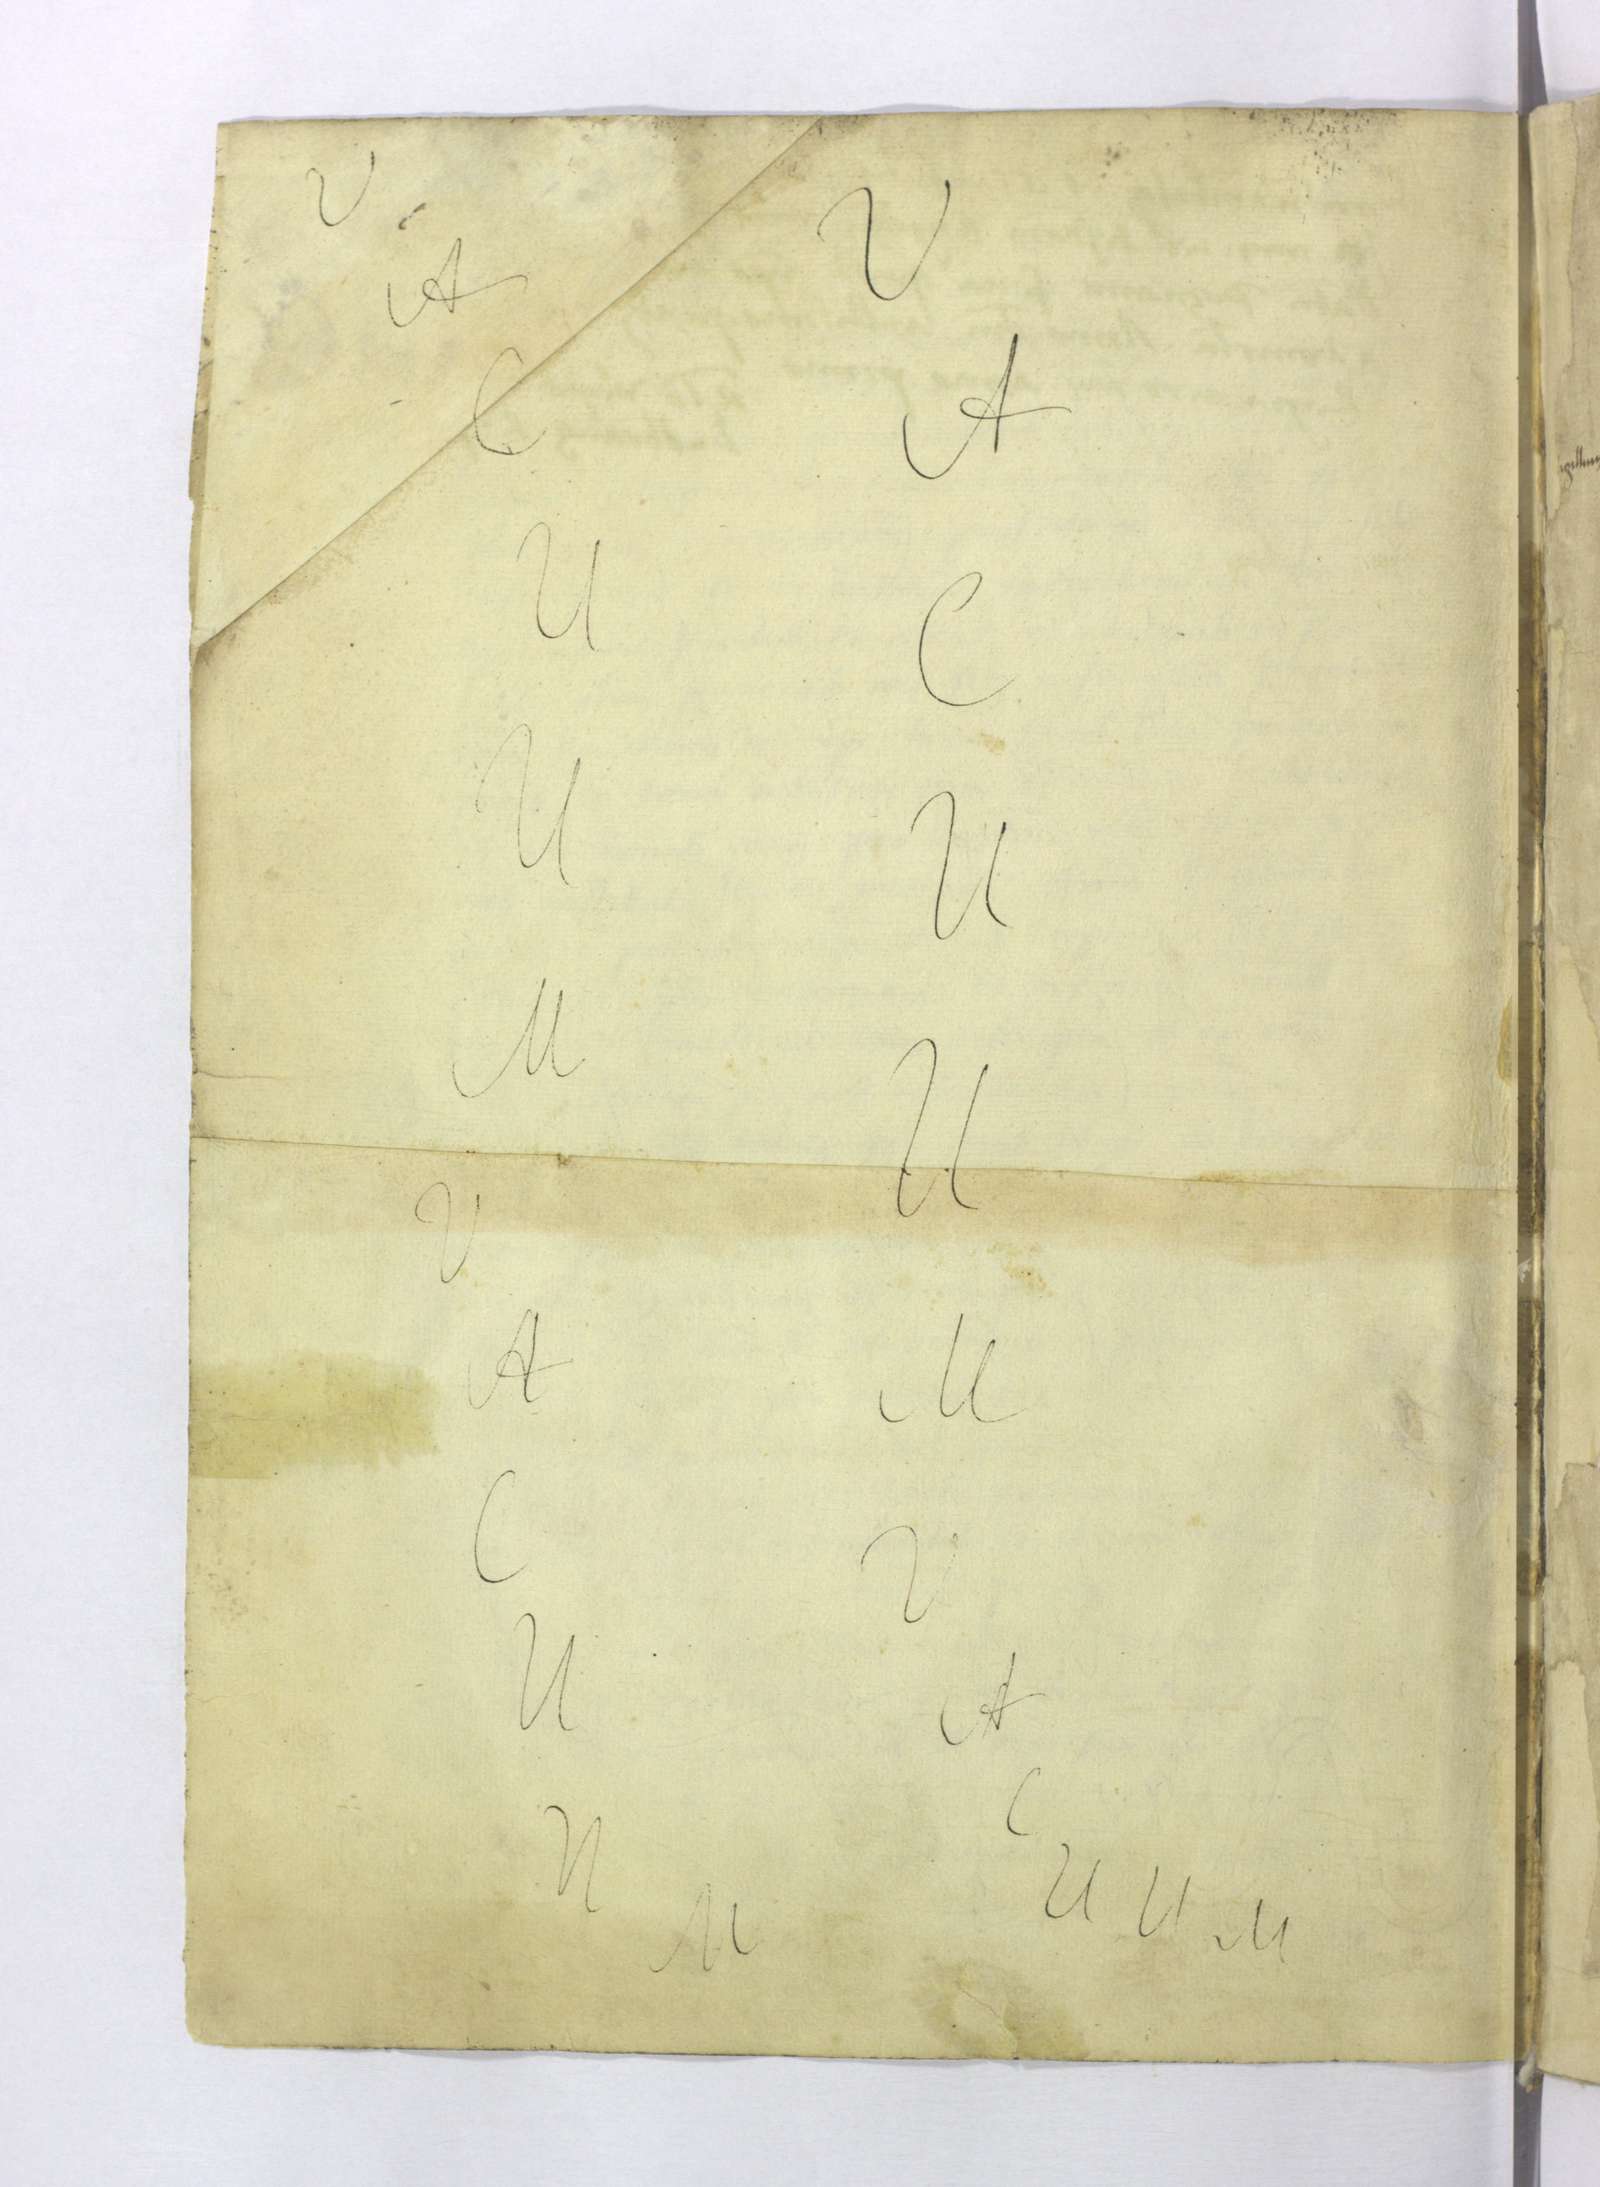 VACUUM
VACUUM
VACUUM
VACUUM